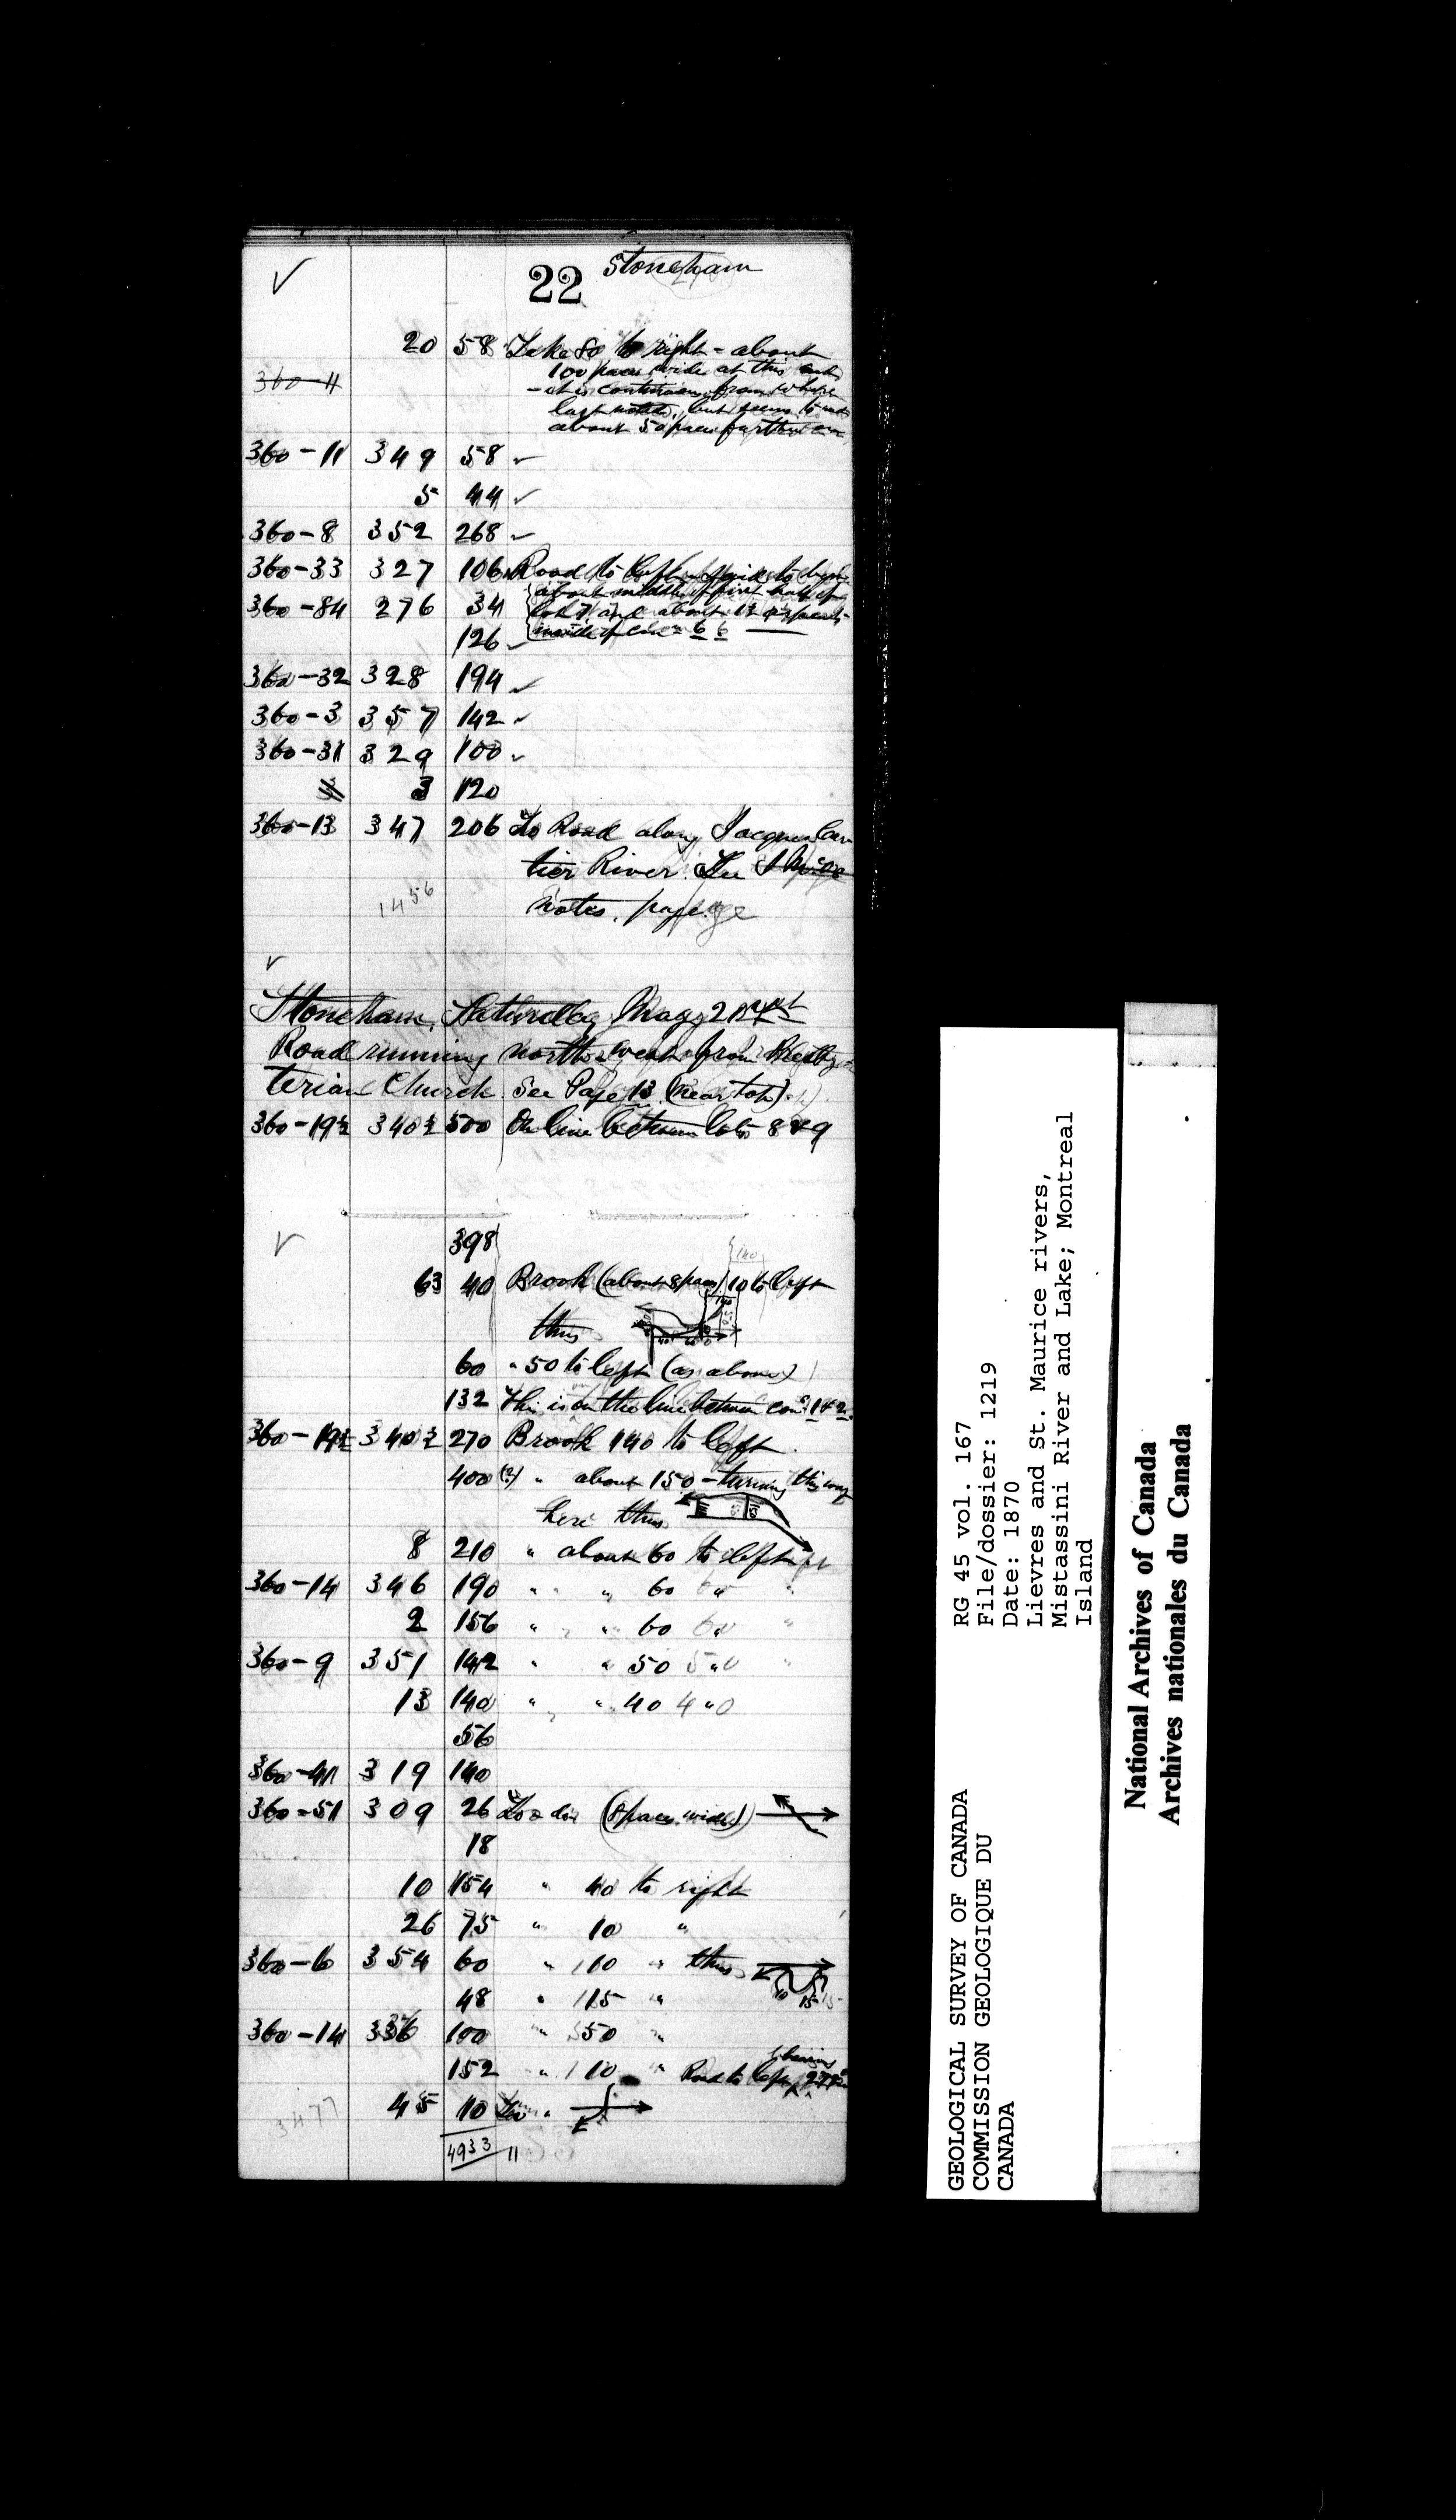 Stoneham
22
20 58 Lake 80 to right - about
100 paces wide at this
360-11
- it is continuous from where
last noted, but seems to
about 50 paces further
360-11 349 58
5 44
360-8 352 268
360-33 327 106 Road to left said to
about middle of first half of
360-84 276 34 lot 7, and about
126 6
360-32 328 194
360-3 357 142
360-31 329 100
3 120
360-13 347 206 To Road along Jacques Car
tier River. See
notes, page
1456
Stoneham, Saturday May 21st
Road running north west from Presby
terian Church. See Page 13 (near top).
360-19½ 340½ 500 On line between lots 8 & 9
398
63 40 Brook (about 8 paces) 10 to left
thus
60 " 50 to left (as above)
132 This is on the line between con. 1 & 2.
360-19½ 340½ 270 Brook 140 to left
400 (?) " about 150 - turning this way
here thus
8 210 " about 60 to left
360-14 346 190 " " 60 "
2 156 " " 60 "
360-9 351 142 " " 50 "
13 140 " " 40
56
360-41 319 140
360-51 309 26 To & (8 paces wide)
18
10 154 " 40 to right
26 75 " 10 "
360-6 354 60 " 10 " thus
48 " 15 "
360-14 336 100 " 50 "
bearing
152 " 10 " Road to left
45 10 To "
3477
4933
11
GEOLOGICAL SURVEY OF CANADA
COMMISSION GEOLOGIQUE DU
CANADA
RG 45 vol. 167
File/dossier: 1219
Date: 1870
Lievres and St. Maurice rivers,
Mistassini River and Lake; Montreal
Island
National Archives of Canada
Archives nationales du Canada